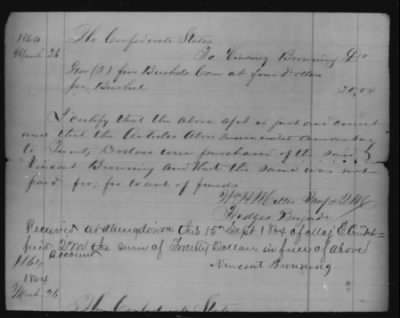 1864 The Confederate States
March 26 To Vinsing Browning Dr
For (5) five Bushels Corn at four Dollars
per Bushel 20.00
I certify that the above a/ct is just and correct
and that the Articles above enumerated amounting
to Twenty Dollars were purchased of the said
Vincent Browning and that the same was not
paid for; for want of funds.
Wm H. Miller Maj & QM
Hodges Brigade
Received at Abingdon Va this 15th Sept 1864 of Maj E.
the sum of Twenty Dollars in full of above
account
Vincent Browning
1864
March 26
The Confederate States